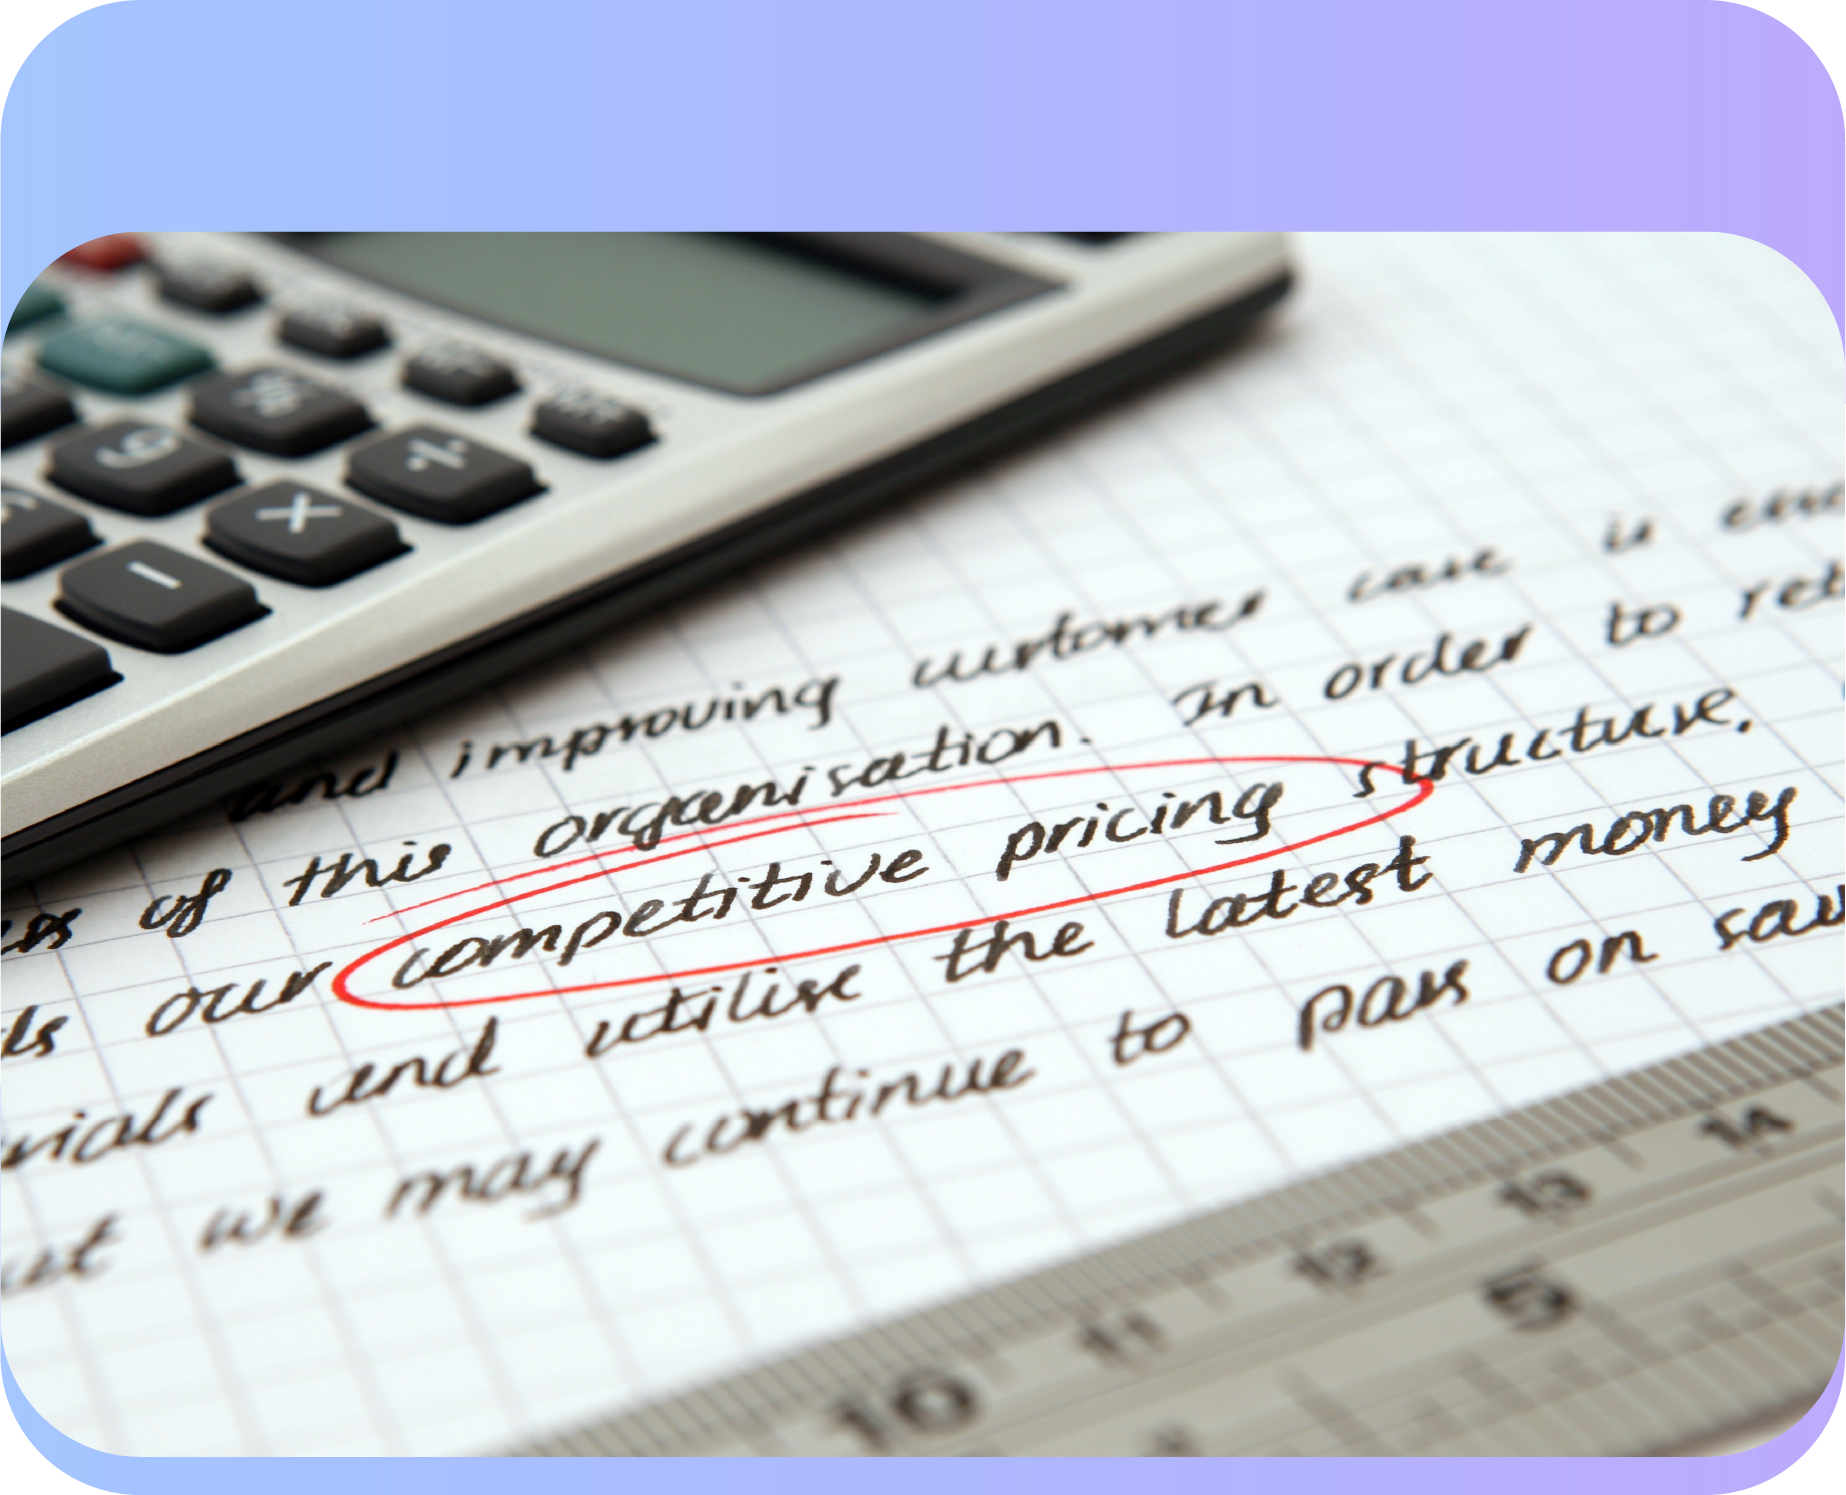 and improving customer care is
of this organisation. In order to
our competitive pricing structure.
and utilise the latest money
we may continue to pass on
%
9
÷
×
−
10 11 12 13 14
5